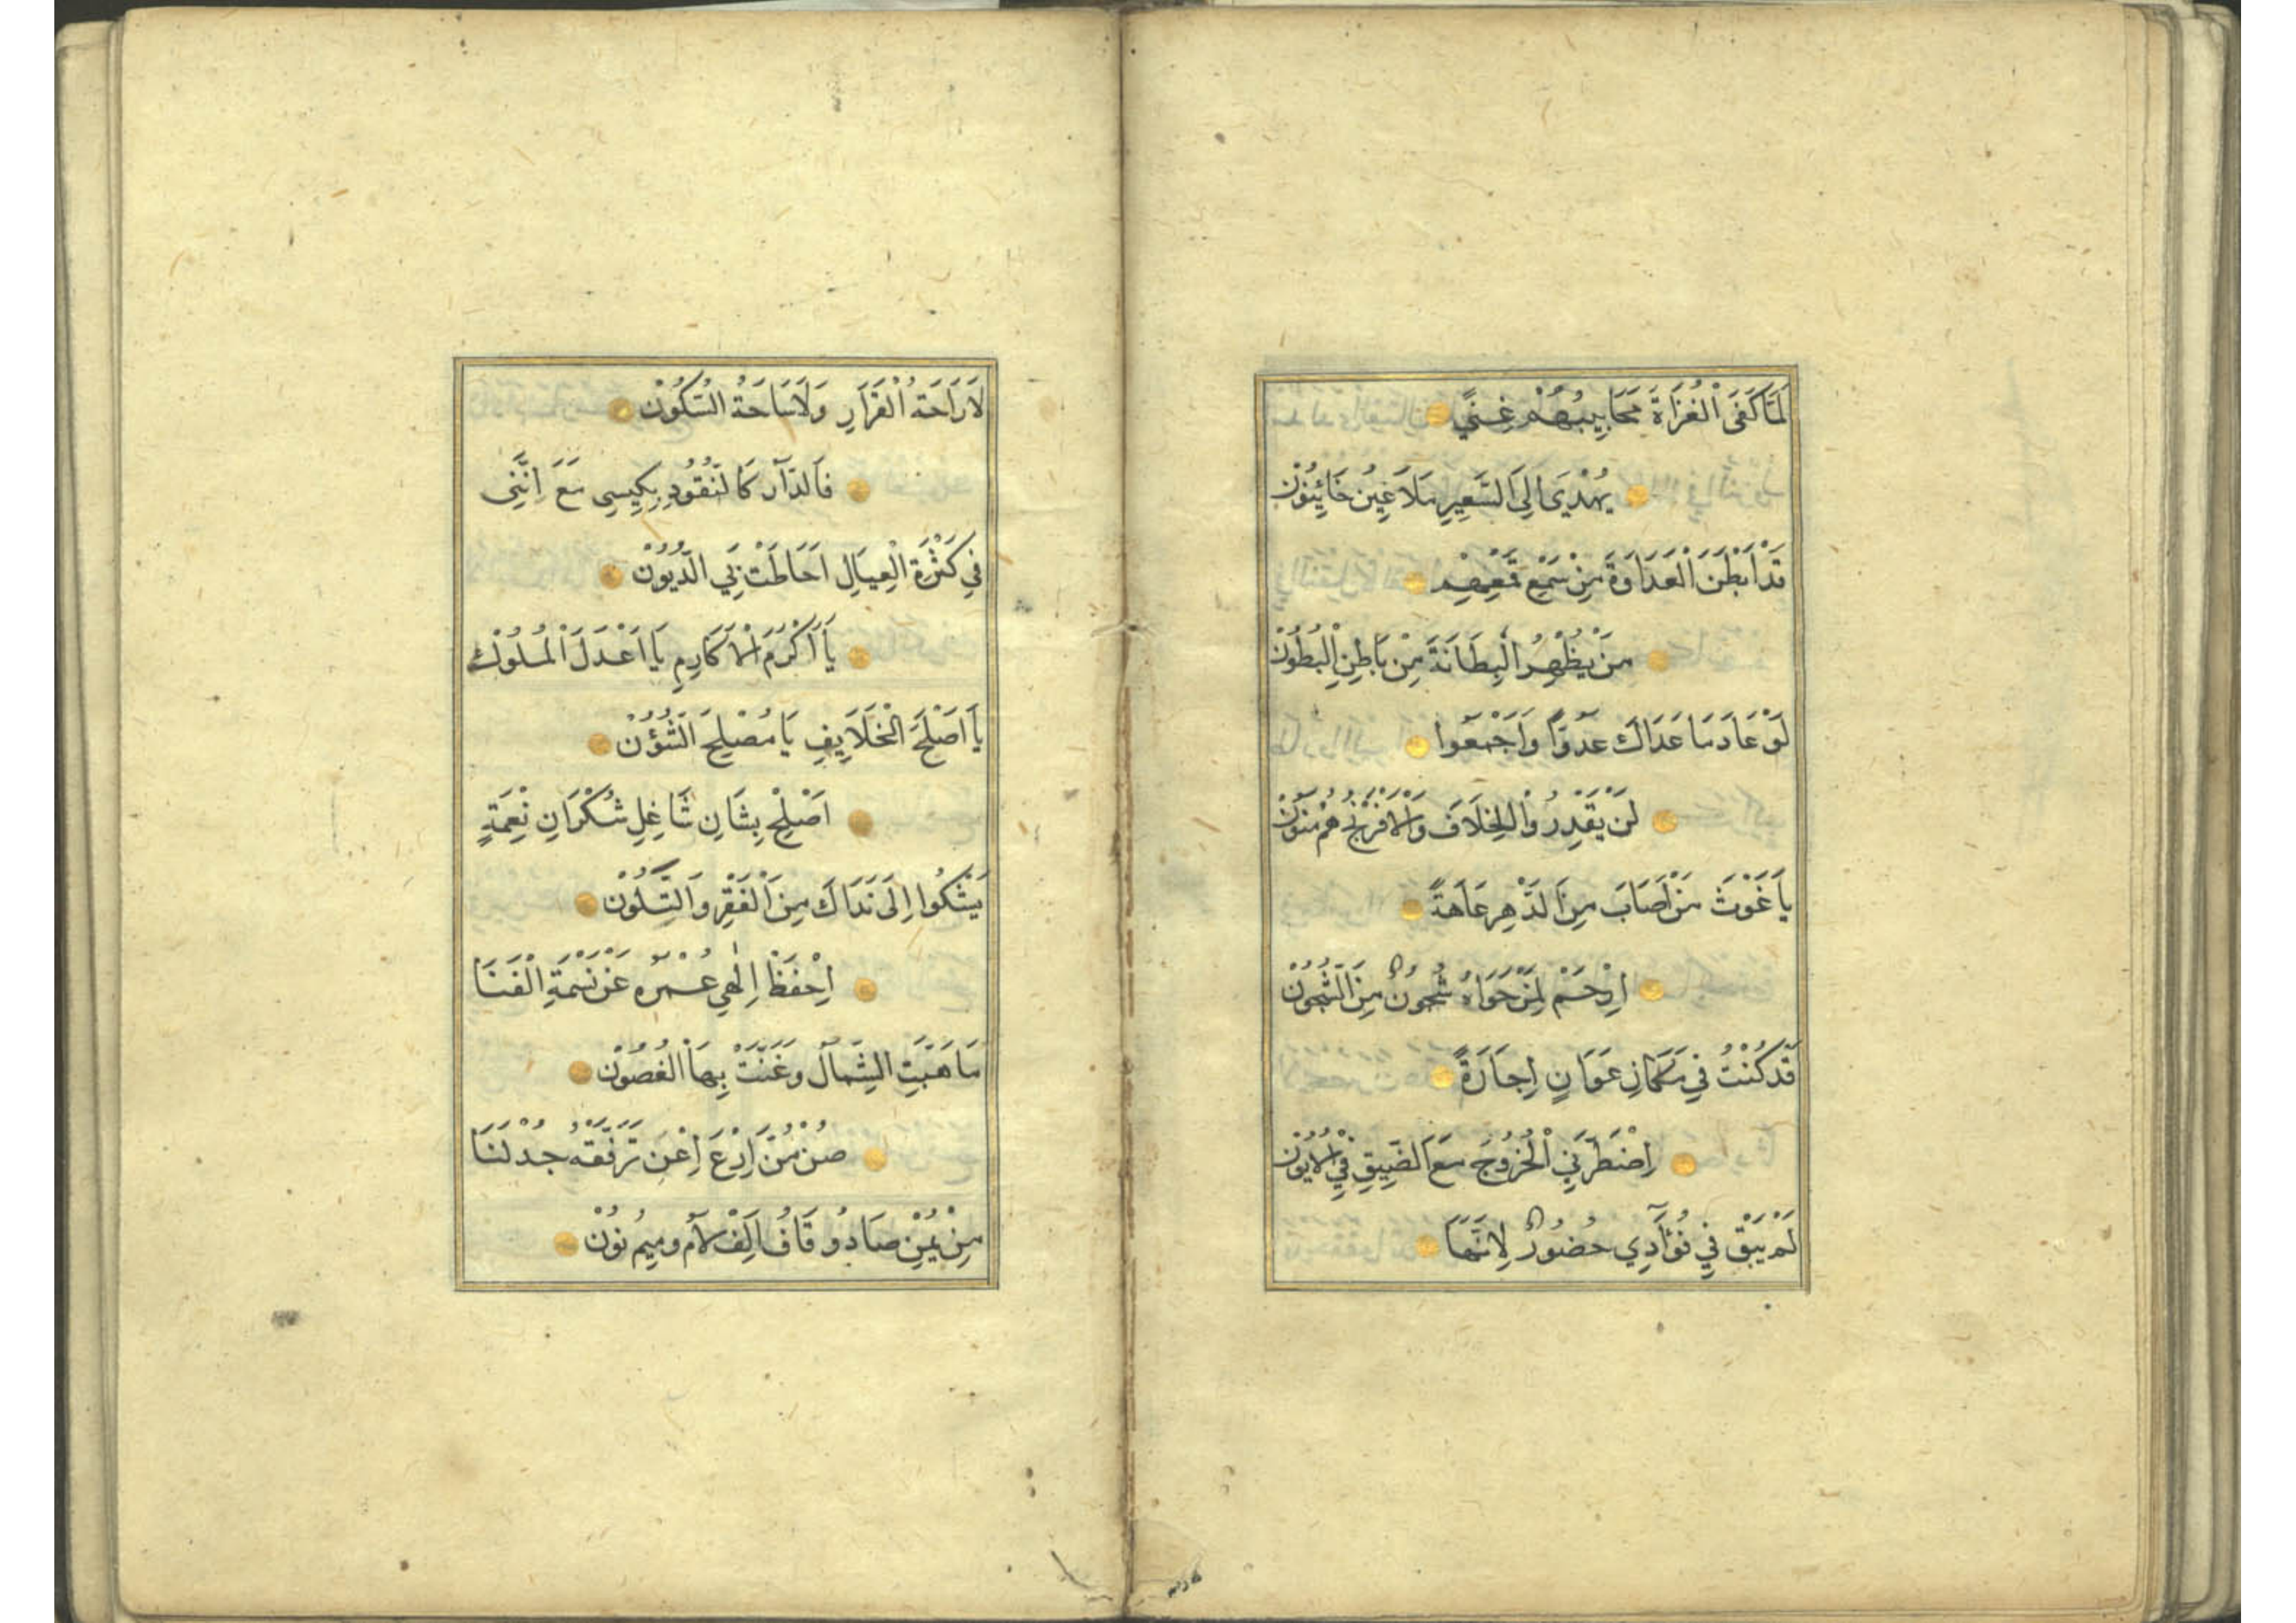 لَمَّا كَفَى الْغُزَاةَ مَحَابِيبُهُمْ غِنًي
يُهْدَى اِلَى السَّعِيرِ مَلَاعِينُ خَائِنُونْ
قَدْ اَبْطَنَ الْعَدَاوَةَ مِنْ سَمْعِ قَعْصِهِمْ
مَنْ يُظْهِرُ الْبِطَانَةَ مِنْ بَاطِنِ الْبُطُونْ
لَوْ عَادَ مَا عَدَاكَ عَدُوًّا وَاَجْمَعُوا
لَنْ يَقْدِرُوا الْخِلَافَ وَالْاَفْرَنْجُ هُمْ مَنُونْ
يَا غَوْثَ مَنْ اَصَابَ مِنَ الدَّهْرِ عَاهَةً
اِرْحَمْ لِمَنْ حَوَاهُ شُجُونٌ مِنَ الشُّجُونْ
قَدْ كُنْتُ فِي مَكَانِ عَوَانٍ اِجَارَةً
اِضْطَرَّنِي الْخُرُوجَ مَعَ الضِّيقِ فِي الْاُيُونْ
لَمْ يَبْقَ فِي فُؤَادِي حُضُورٌ لِاَنَّهَا
لَا رَاحَةُ الْقَرَارِ وَلَا سَاحَةُ السُّكُونْ
فَالدَّارُ كَالنُّقُودِ بِكِيسِي مَعَ اِنَّنِي
فِي كَثْرَةِ الْعِيَالِ اَحَاطَتْ بِيَ الدُّيُونْ
يَا اَكْرَمَ الْاَكَارِمِ يَا اَعْدَلَ الْمُلُوكْ
يَا اَصْلَحَ الْخَلَايِفِ يَا مُصْلِحَ الشُّؤُنْ
اَصْلِحْ بِشَانِ شَاغِلِ شُكْرَانِ نِعْمَةٍ
يَشْكُوا اِلَى نَدَاكَ مِنَ الْفَقْرِ وَالتَّلُونْ
اِحْفَظْ اِلٰهِي عُمْرَهُ عَنْ نَسْمَةِ الْفَنَا
مَا هَبَّتِ الشِّمَالُ وَغَنَّتْ بِهَا الْغُصُونْ
صُنْ مُنَّ اِرْعَ اِعْنَ تَرَفَّقْهُ جُدْ لَنَا
مِنْ يُمْنِ صَادُ وقَافُ اَلِفْ لَامُ ومِيمُ نُونْ